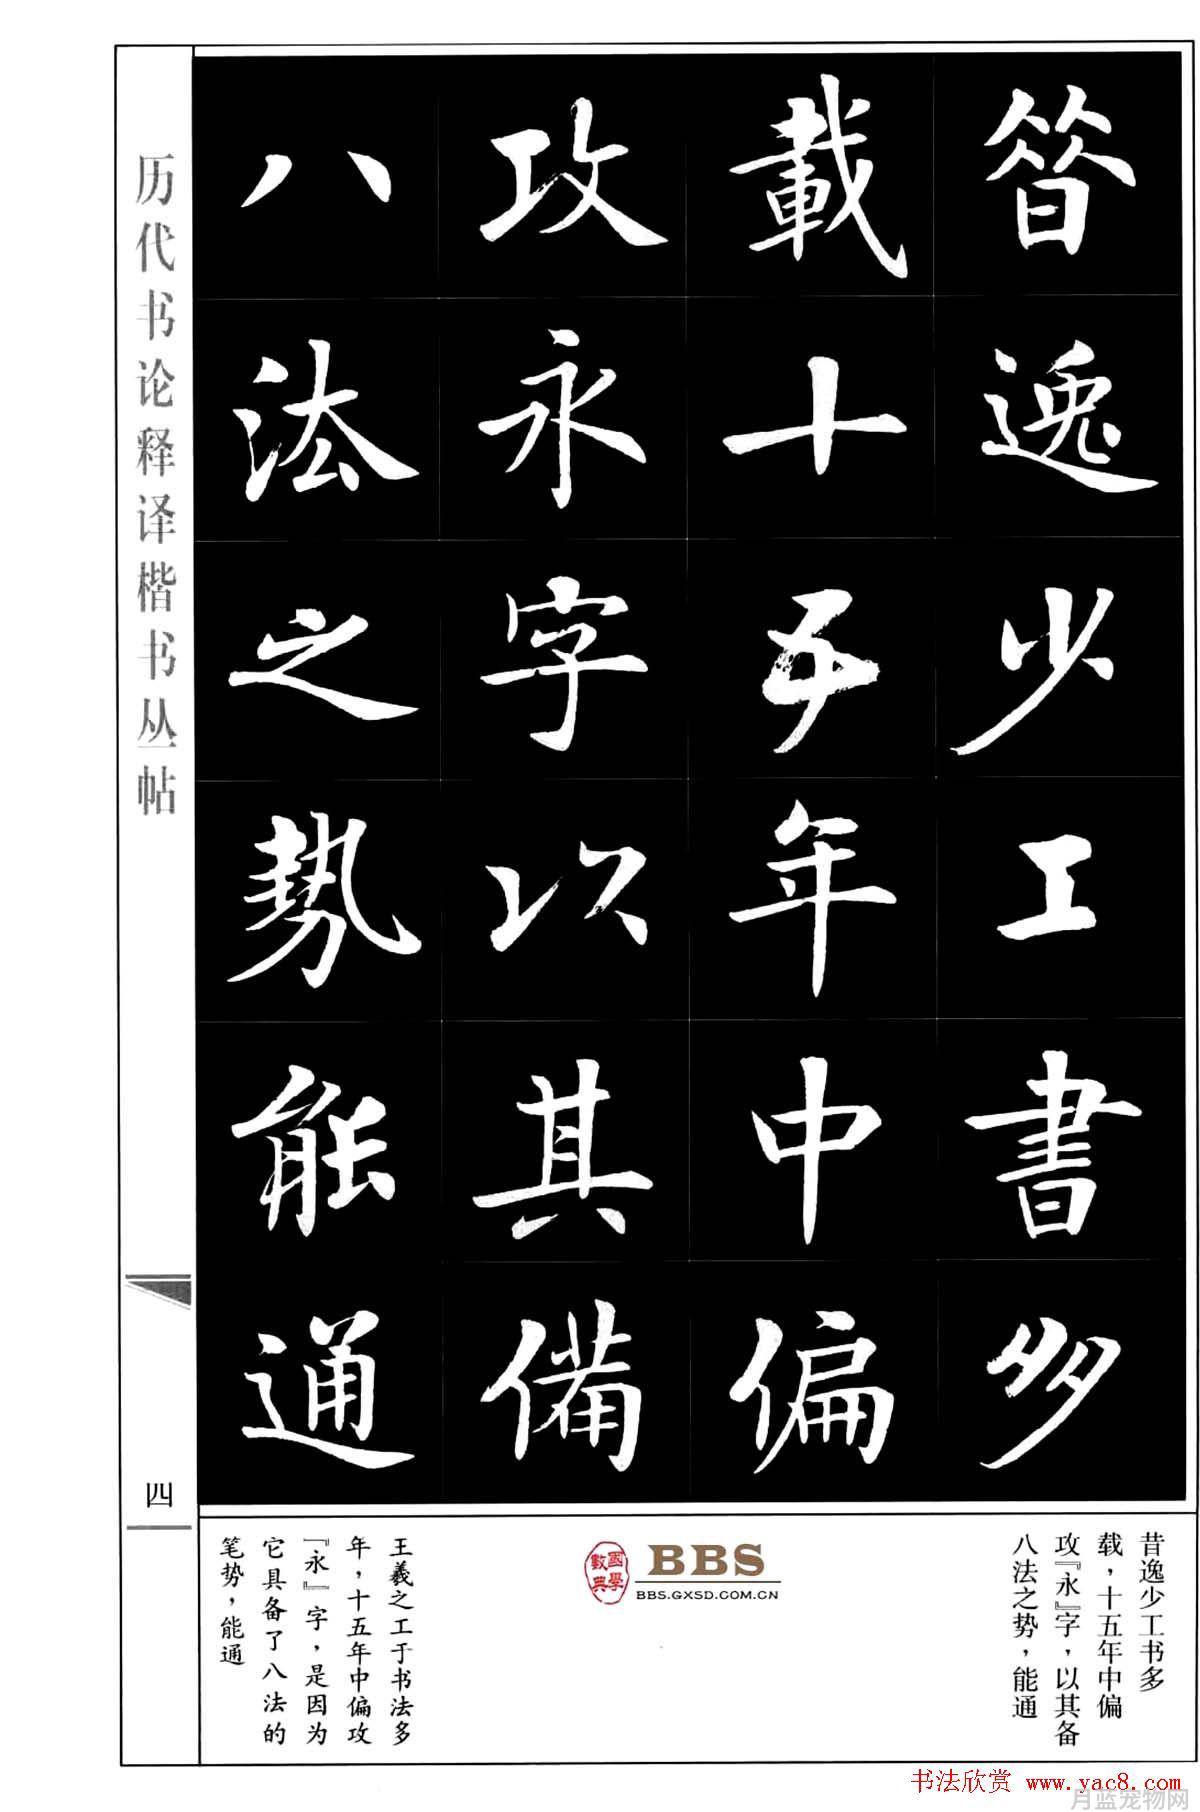 昔逸少工書多
載十五年中偏
攻永字以其備
八法之勢能通
历代书论释译楷书丛帖
四
昔逸少工书多
载，十五年中偏
攻『永』字，以其备
八法之势，能通
國學數典
BBS
BBS.GXSD.COM.CN
王羲之工于书法多
年，十五年中偏攻
『永』字，是因为
它具备了八法的
笔势，能通
书法欣赏 www.yac8.com
月蓝宠物网